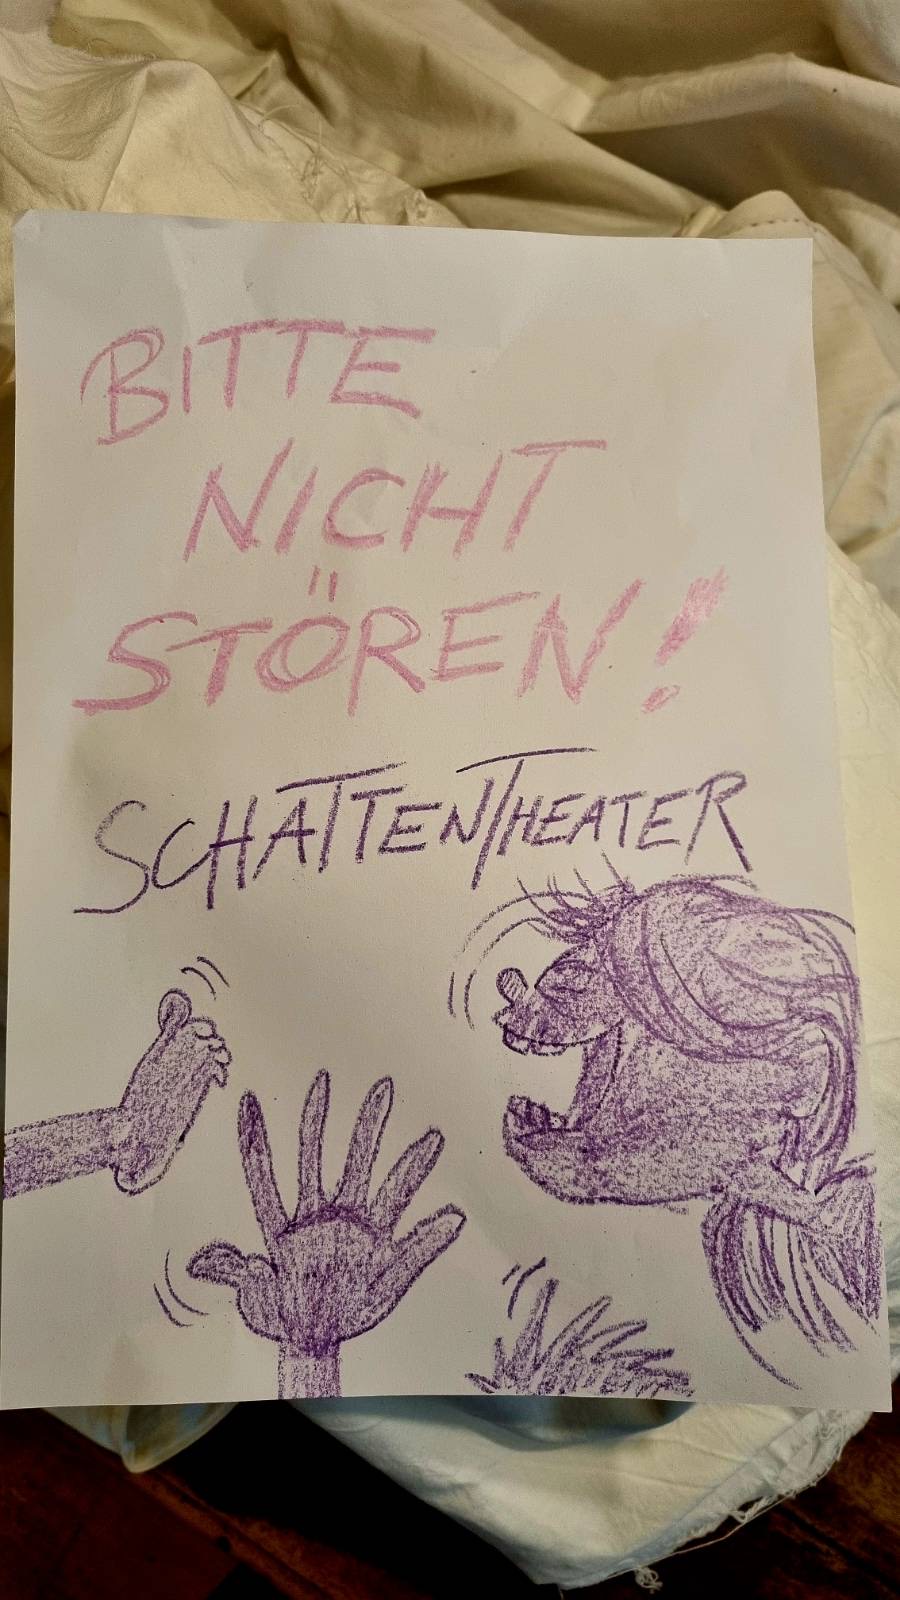 BITTE
NICHT
STÖREN!
SCHATTENTHEATER